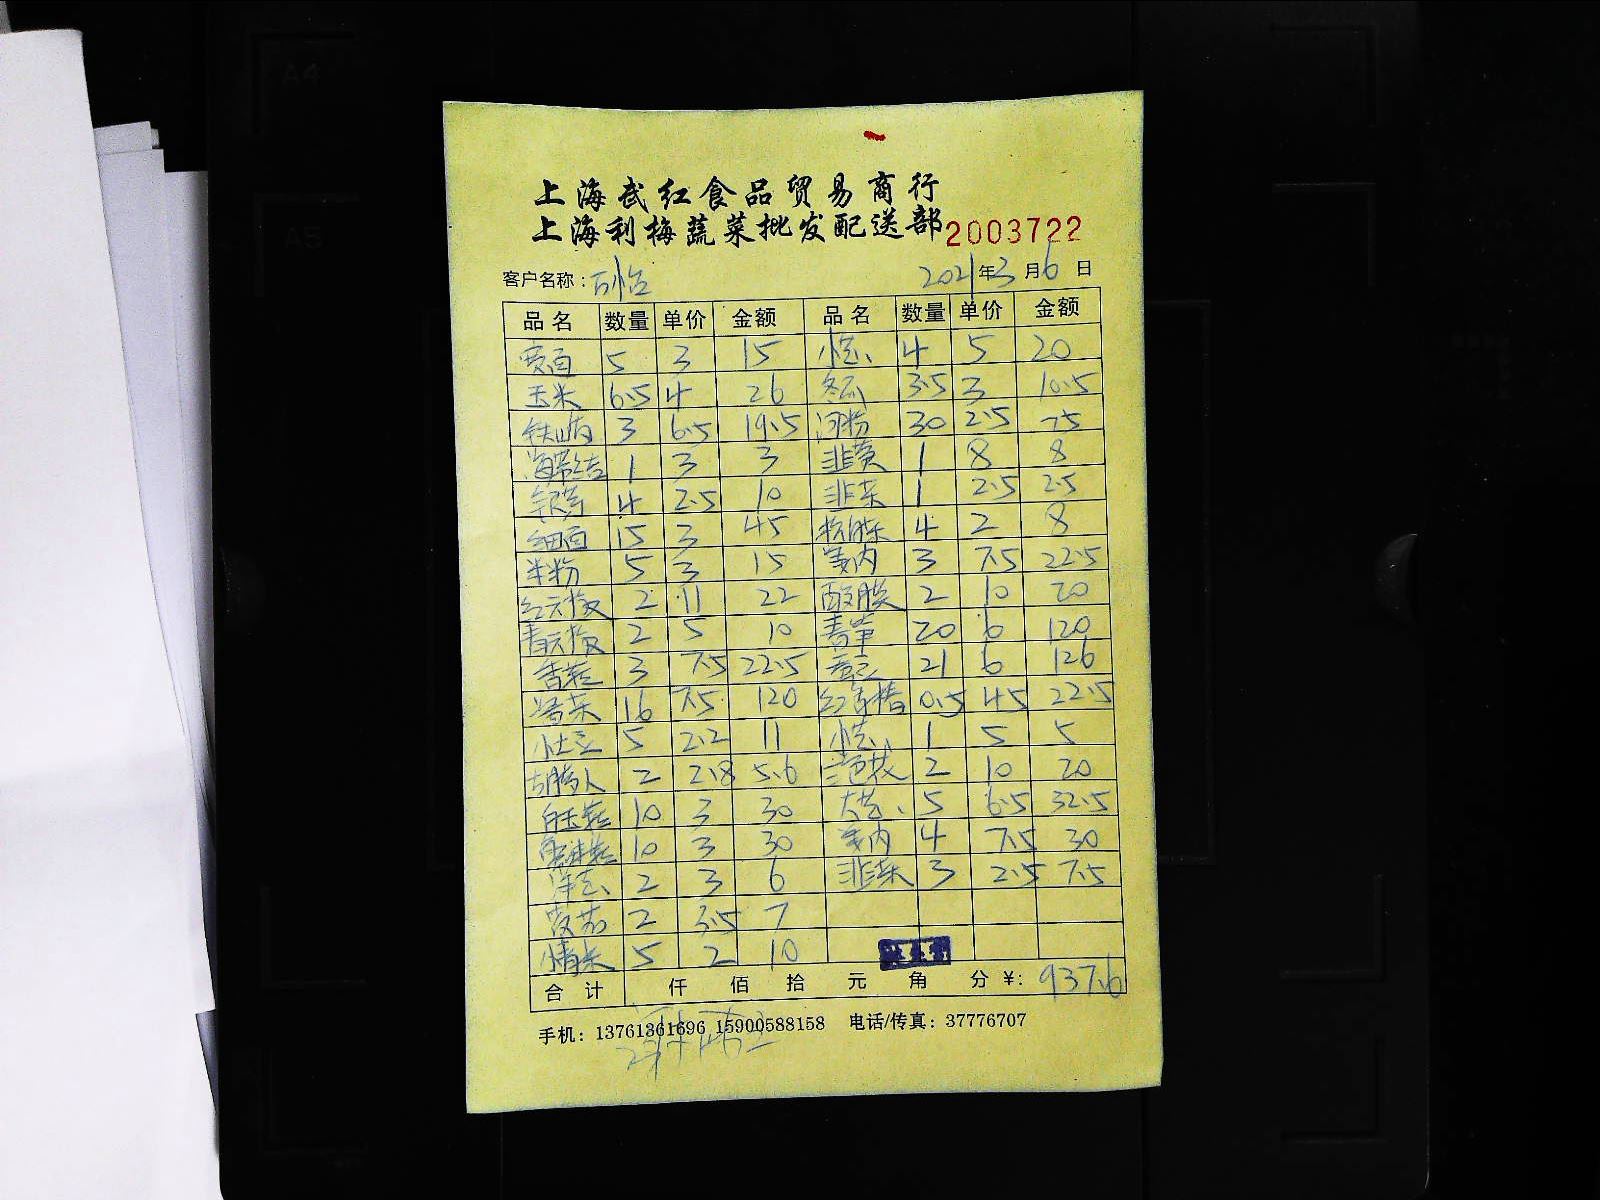 A4
A5
上海武红食品贸易商行
上海利梅蔬菜批发配送部 2003722
客户名称: 2021年3月6日
品名 数量 单价 金额 品名 数量 单价 金额
5 3 15 小葱 4 5 20
玉米 6.5 4 26 冬瓜 3.5 3 10.5
铁山 3 6.5 19.5 河粉 30 2.5 75
海带结 1 3 3 韭黄 1 8 8
银芽 4 2.5 10 韭菜 1 2.5 2.5
细面 15 3 45 4 2 8
米粉 5 3 15 姜肉 3 7.5 22.5
红元椒 2 11 22 2 10 20
青元椒 2 5 10 青笋 20 6 120
香菇 3 7.5 22.5 21 6 126
16 7.5 120 红尖椒 0.5 45 22.5
小土豆 5 2.2 11 小葱 1 5 5
2 2.8 5.6 2 10 20
白玉菇 10 3 30 大葱 5 6.5 32.5
10 3 30 姜肉 4 7.5 30
洋葱 2 3 6 韭菜 3 2.5 7.5
2 3.5 7
5 2 10
合计 仟 佰 拾 元 角 分 ¥: 937.6
手机: 13761361696 15900588158 电话/传真: 37776707